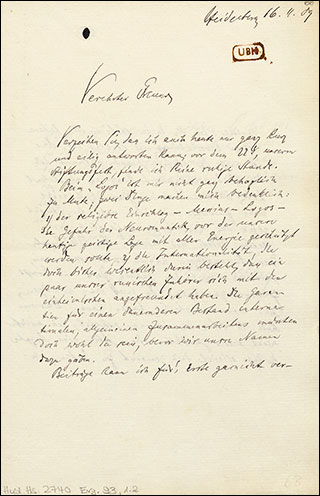 Heidelberg 16. 11. 09
UBH
Verehrter Freund,
Verzeihen Sie, dass ich auch heute nur ganz kurz
und eilig antworten kann; vor dem 22ten, unserem
Stiftungsfest, finde ich keine ruhige Stunde.
Beim „Logos" ist mir nicht ganz behaglich
zu Mute; zwei Dinge machen mich bedenklich:
1) der religiöse Einschlag – – Logos –
die Gefahr der Neuromantik, vor der unsere
heutige geistige Lage mit aller Energie geschützt
werden sollte; 2) die Internationalität, die
doch bisher wesentlich darin besteht, dass ein
paar unserer russischen Zuhörer sich mit den
einheimischen angefreundet haben. Die Garan-
tien für einen dauernden Bestand interna-
tionalen, allgemeinen Zusammenarbeitens müssten
doch wohl da sein, bevor wir unsre Namen
dazu geben.
Beiträge kann ich fürs Erste garnicht ver-
Heid. Hs. 2740 Erg. 93, 1.2